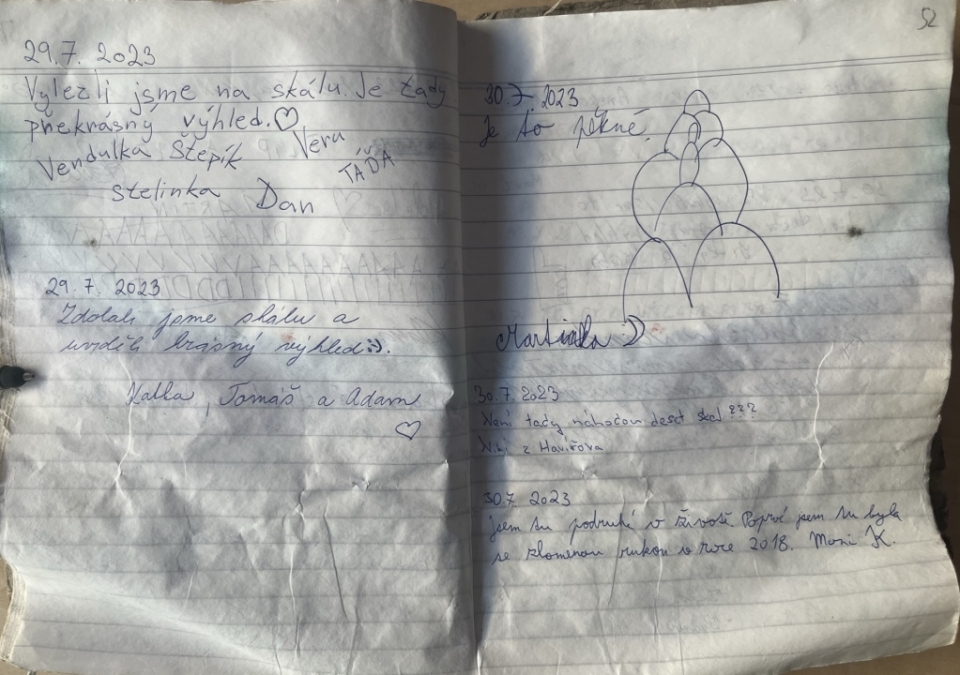 29.7. 2023
Vylezli jsme na skálu. Je tady
překrásný výhled.♡
Vendulka Štepík Veru
TÁĎA
Stelinka Dan
29. 7. 2023
Zdolali jsme skálu a
uviděli krásný výhled:).
Katka, Tomáš a Adam
♡
52
30.7. 2023
Je to pěkné.
Martinka :)
30.7. 2023
Není tady náhodou deset skal???
z Havířova
30.7. 2023
jsem tu podruhé v životě Poprvé jsem tu byla
se zlomenou rukou v roce 2018. Moni K.